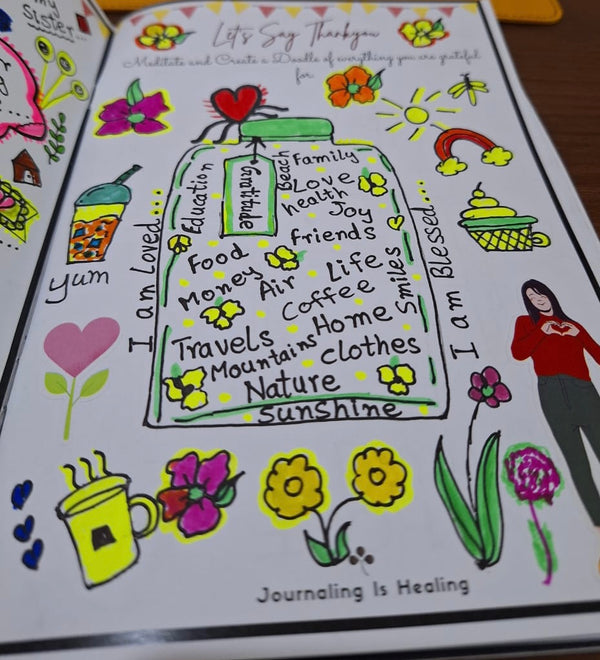 my
sister...
Let's Say Thankyou
Meditate and Create a Doodle of everything you are grateful
for
Education
Gratitude
Beach
Family
Love
health
Joy
friends
Food
Money
Air
Life
Smiles
Coffee
Travels
Home
Mountains
clothes
Nature
sunshine
I am Loved....
I am Blessed....
yum
Journaling Is Healing